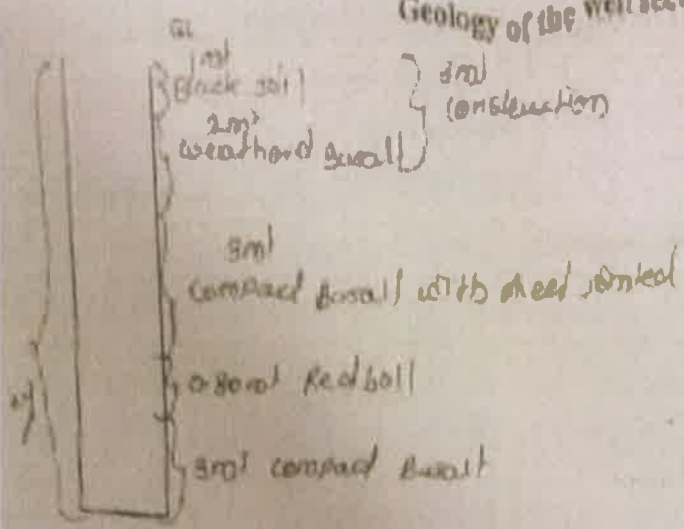 Geology of the Well
GL
1mt
Black soil
2mt
weatherd Basalt
3mt
construction
9mt
compact Basalt with sheet jointed
0.80mt Redboll
3mt compact Basalt